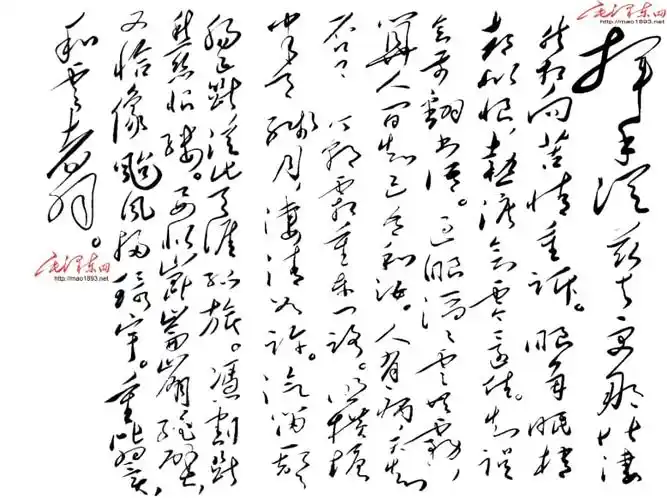 挥手从兹去更那堪凄
然相向苦情重诉。眼角眉梢
都似恨,热泪欲零还住。知误
会前翻书语。过眼滔滔云共雾,
算人间知己吾和汝。人有病,天知
否？今朝霜重东门路。照横塘
半天残月,凄清如许。汽笛一声
肠已断,从此天涯孤旅。凭割断
愁丝恨缕。要似崑崙崩绝壁,
又恰像颱风扫寰宇。重比翼,
和云翥。
毛泽东网
http://mao1893.net
毛泽东网
http://mao1893.net